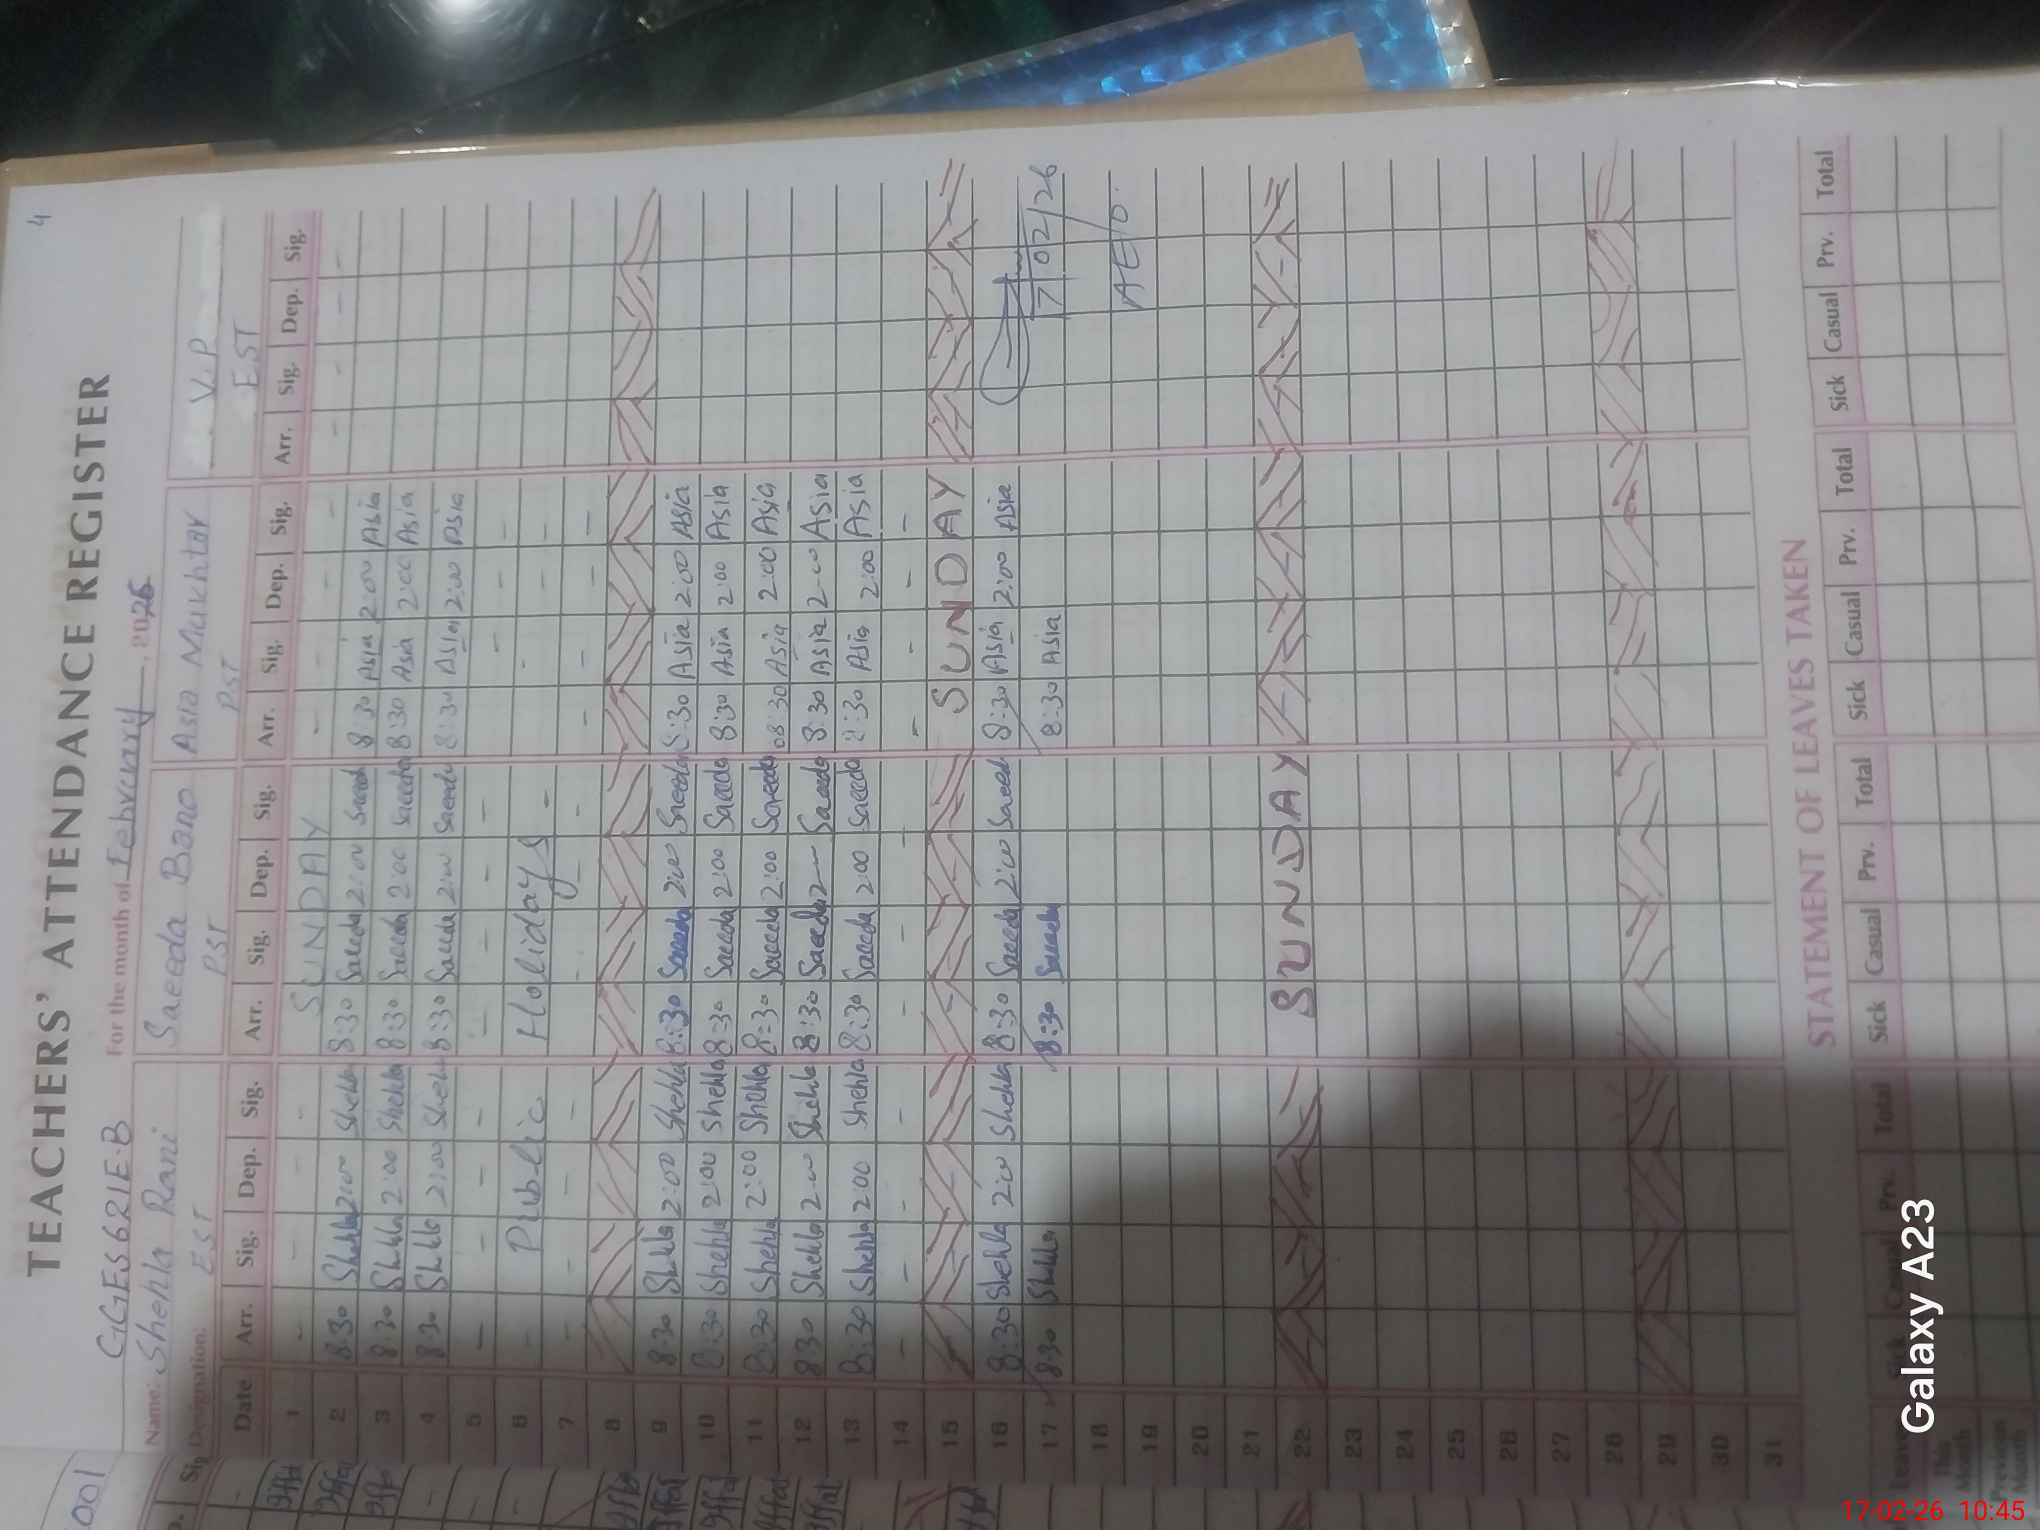 4
TEACHERS' ATTENDANCE REGISTER
GGES 621E.B For the month of February, 2026
Name: Shehla Rani Saeeda Bano Asia Mukhtar V.P
Designation: EST PST PST EST
Date Arr. Sig. Dep. Sig. Arr. Sig. Dep. Sig. Arr. Sig. Dep. Sig. Arr. Sig. Dep. Sig.
1 - - - - SUNDAY - - - -
2 8:30 Shehla 2:00 Shehla 8:30 Saeeda 2:00 Saeeda 8:30 Asia 2:00 Asia - - - -
3 8:30 Shehla 2:00 Shehla 8:30 Saeeda 2:00 Saeeda 8:30 Asia 2:00 Asia
4 8:30 Shehla 2:00 Shehla 8:30 Saeeda 2:00 Saeeda 8:30 Asia 2:00 Asia
5 - - - - - - - - - - - -
6 - Public Holidays - - -
7 - - - - - - - - -
8
9 8:30 Shehla 2:00 Shehla 8:30 Saeeda 2:00 Saeeda 8:30 Asia 2:00 Asia
10 8:30 Shehla 2:00 Shehla 8:30 Saeeda 2:00 Saeeda 8:30 Asia 2:00 Asia
11 8:30 Shehla 2:00 Shehla 8:30 Saeeda 2:00 Saeeda 08:30 Asia 2:00 Asia
12 8:30 Shehla 2:00 Shehla 8:30 Saeeda 2 — Saeeda 8:30 Asia 2:00 Asia
13 8:30 Shehla 2:00 Shehla 8:30 Saeeda 2:00 Saeeda 8:30 Asia 2:00 Asia
14 - - - - - - - - - - - -
15 SUNDAY
16 8:30 Shehla 2:00 Shehla 8:30 Saeeda 2:00 Saeed 8:30 Asia 2:00 Asia
17 8:30 Shehla 8:30 Saeeda 8:30 Asia 17/02/26
18 AEO.
19
20
21
22 SUNDAY
23
24
25
26
27
28
29
30
31
STATEMENT OF LEAVES TAKEN
Leaves Sick Casual Prv. Total Sick Casual Prv. Total Sick Casual Prv. Total Sick Casual Prv. Total
This Month
Previous Month
001
Sig
Galaxy A23
17-02-26 10:45